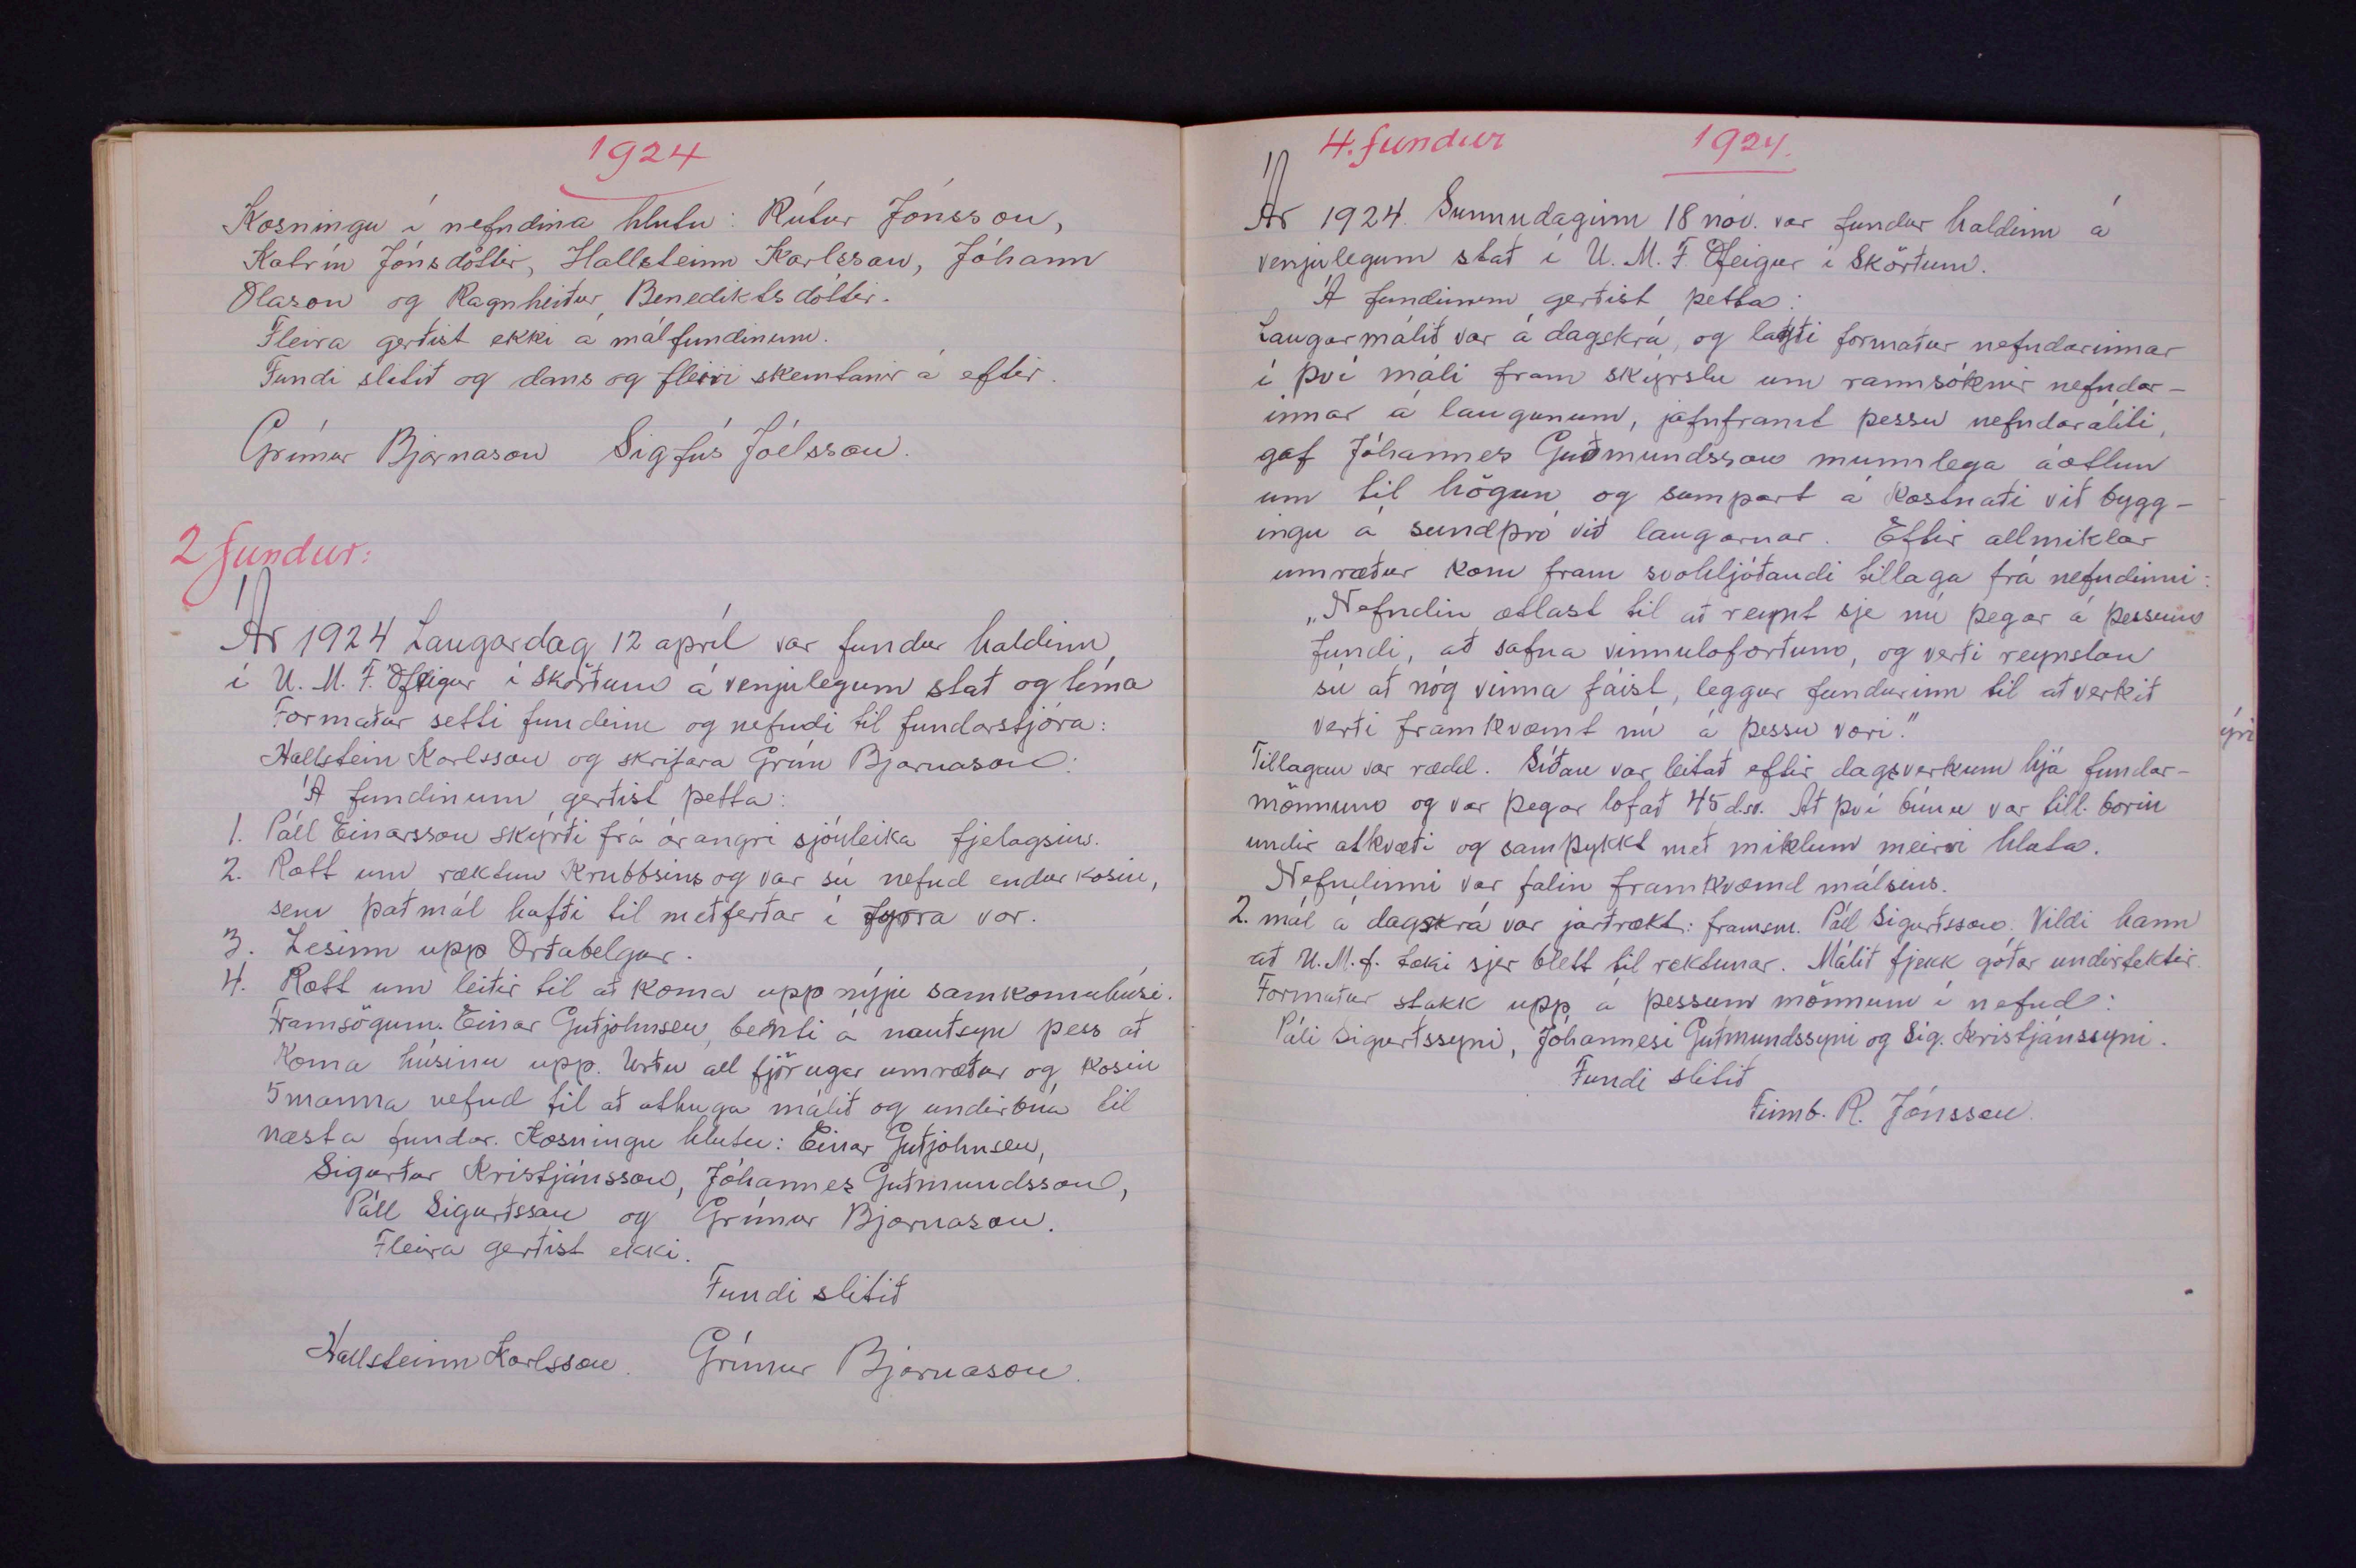 1924
Kosningu í nefndina hlutu: Rútur Jónsson,
Katrín Jónsdóttir, Hallsteinn Karlsson, Jóhann
Ólason og Ragnheiður Benediktsdóttir.
Fleira gerðist ekki á málfundinum.
Fundi slitið og dans og fleiri skemtanir á eftir.
Grímur Bjarnason Sigfús Jóelsson.
2 fundur:
Ár 1924 Laugardag 12 apríl var fundur haldinn
í U. M. F. Ófeigur í Skörðum á venjulegum stað og tíma
Formaður setti fundinn og nefndi til fundarstjóra:
Hallstein Karlsson og skrifara Grím Bjarnason:
Á fundinum gerðist þetta:
1. Páll Einarsson skýrði frá árangri sjónleika fjelagsins.
2. Rætt um ræktun Krubbsins og var sú nefnd endurkosin,
sem það mál hafði til meðferðar í fyrra vor.
3. Lesinn upp Orðabelgur.
4. Rætt um leiðir til að koma upp nýju samkomuhúsi.
Framsögum. Einar Guðjohnsen, benti á nauðsyn þess að
koma húsinu upp. Urðu all fjörugar umræður og kosin
5 manna nefnd til að athuga málið og undirbúa til
næsta fundar. Kosningu hlutu: Einar Guðjohnsen,
Sigurður Kristjánsson, Jóhannes Guðmundsson,
Páll Sigurðsson og Grímur Bjarnason.
Fleira gerðist ekki.
Fundi slitið
Hallsteinn Karlsson. Grímur Bjarnason.
4. fundur 1924.
Ár 1924. Sunnudaginn 18 nóv. var fundur haldinn á
venjulegum stað í U. M. F. Ófeigur í Skörðum.
Á fundinum gerðist þetta:
Laugarmálið var á dagskrá, og lagði formaður nefndarinnar
í því máli fram skýrslu um rannsóknir nefndar-
innar á laugunum, jafnframt þessu nefndaráliti,
gaf Jóhannes Guðmundsson munnlega áætlun
um til högun og sumpart á kostnaði við bygg-
ingu á sundþró við laugarnar. Eftir allmiklar
umræður kom fram svohljóðandi tillaga frá nefndinni:
„Nefndin ætlast til að reynt sje nú þegar á þessum
fundi, að safna vinnuloforðum, og verði reynslan
sú að nóg vinna fáist, leggur fundurinn til að verkið
verði framkvæmt nú á þessu vori."
Tillagan var rædd. Síðan var leitað eftir dagsverkum hjá fundar-
mönnum og var þegar lofað 45 dsv. Að því búnu var till. borin
undir atkvæði og samþykkt með miklum meiri hluta.
Nefndinni var falin framkvæmd málsins.
2. mál á dagskrá var jarðrækt: framsm. Páll Sigurðsson. Vildi hann
að U.M.f. tæki sjer blett til ræktunar. Málið fjekk góðar undirtektir.
Formaður stakk upp á þessum mönnum í nefnd:
Páli Sigurðssyni, Jóhannesi Guðmundssyni og Sig. Kristjánssyni.
Fundi slitið
Finnb. R. Jónsson.
ýri